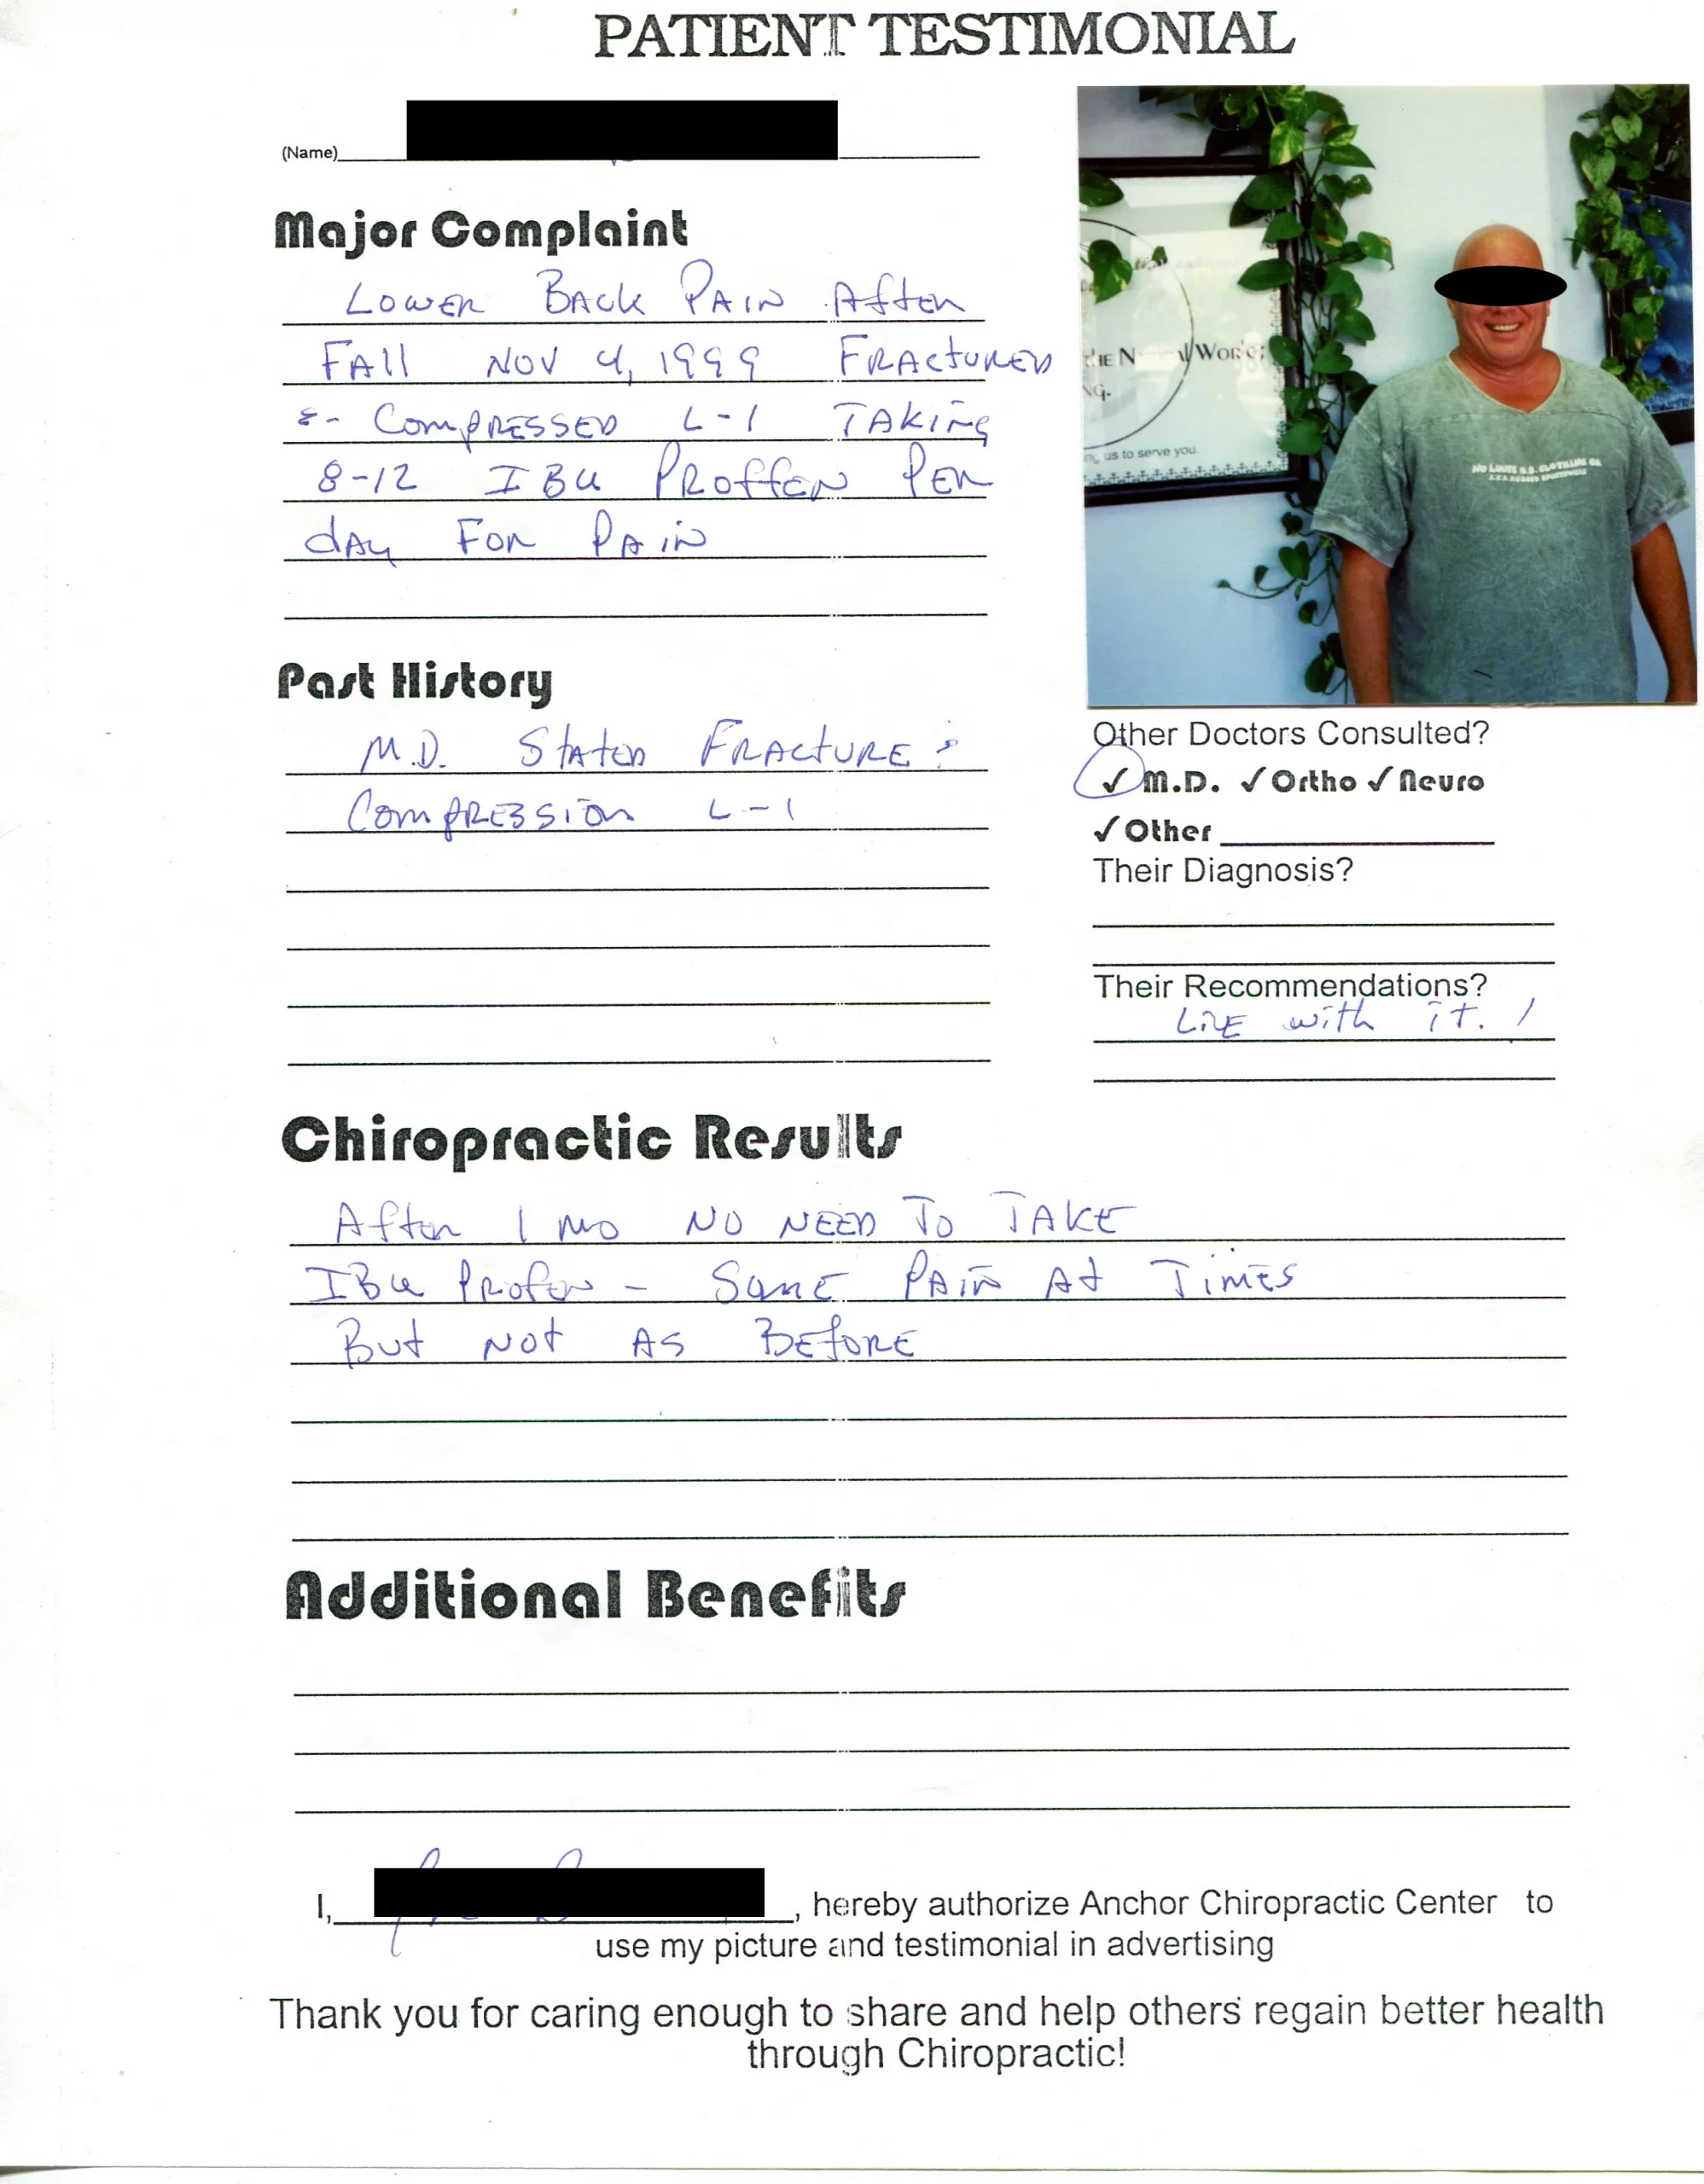 PATIENT TESTIMONIAL
(Name)
Major Complaint
Lower Back Pain After
Fall Nov 4, 1999 Fractured
& Compressed L-1 Taking
8-12 IBu Proffen Per
day For Pain
Past History
M.D. Stated Fracture &
Compression L-1
HE N Works
NG.
ng us to serve you.
NO LIMITS U.S. CLOTHING CO.
U.S.A RUGGED SPORTSWEAR
Other Doctors Consulted?
✓ M.D. ✓ Ortho ✓ Neuro
✓ Other
Their Diagnosis?
Their Recommendations?
Live with it. !
Chiropractic Results
After 1 mo No Need To Take
IBu Profen - Some Pain At Times
But Not As Before
Additional Benefits
I, , hereby authorize Anchor Chiropractic Center to
use my picture and testimonial in advertising
Thank you for caring enough to share and help others regain better health
through Chiropractic!